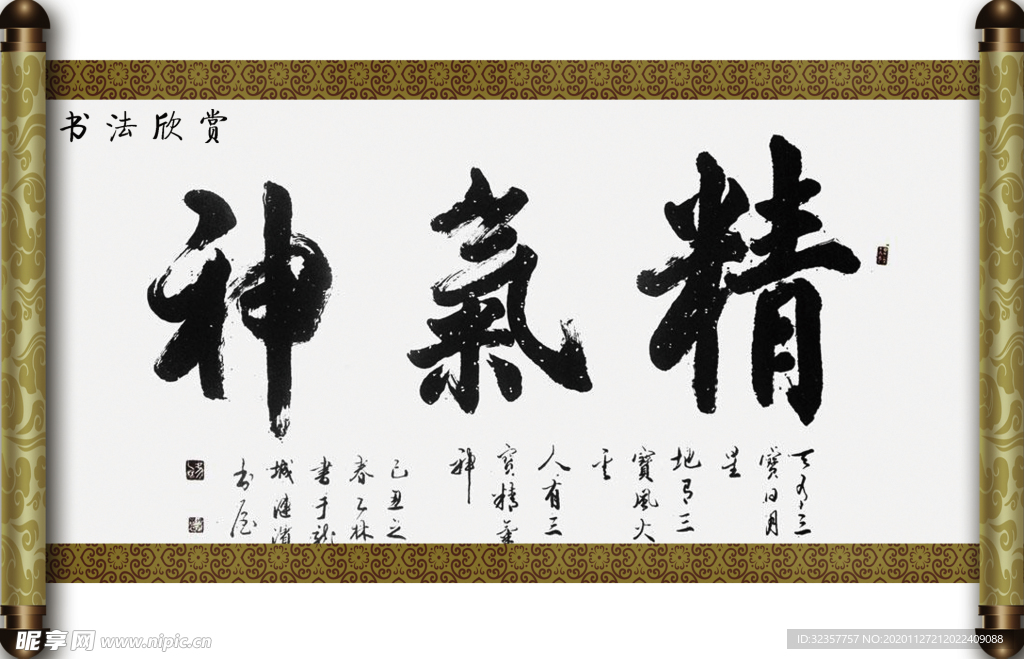 书法欣赏
精氣神
天有三
寶日月
星
地有三
寶風火
人有三
寶精氣
神
己丑之
書于龍
書屋
昵享网 www.nipic.cn
ID:32357757 NO:20201127212022409088